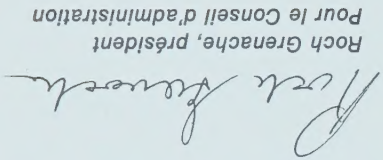 Roch Grenache
Roch Grenache, président
Pour le Conseil d'administration